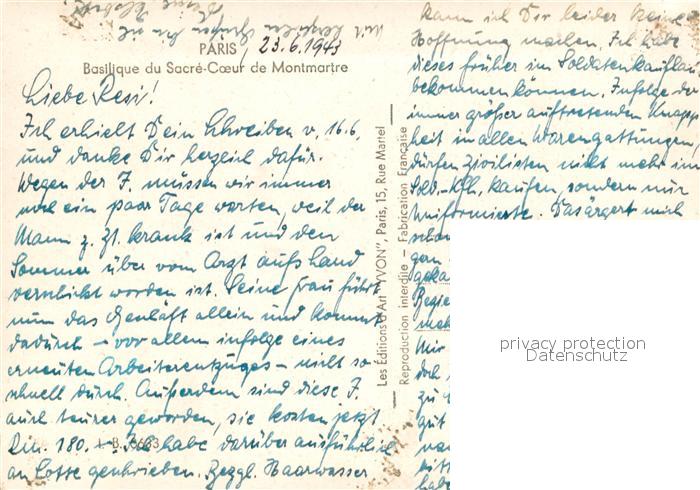 mit herzlichen Grüßen bin ich
PARIS, 23.6.1943
Basilique du Sacré-Cœur de Montmartre
Liebe Resi!
Ich erhielt Dein Schreiben v. 16.6.
und danke Dir herzlich dafür.
Wegen der J. müssen wir immer
noch ein paar Tage warten, weil der
Mann z. Zt. krank ist und den
Sommer über vom Arzt aufs Land
verschickt worden ist. Seine Frau führt
nun das Geschäft allein und kommt
dadurch – vor allem infolge eines
erneuten Arbeiterentzuges – nicht so
schnell durch. Außerdem sind diese J.
auch teurer geworden, sie kosten jetzt
Dm. 180.– Ich habe darüber ausführlich
an Lotte geschrieben. Bezgl. Haarwasser
Les Éditions d'Art "YVON", Paris, 15, Rue Martel
Reproduction interdite – Fabrication Française
kann ich Dir leider keine
Hoffnung machen. Ich habe
dieses früher im Soldatenkaufhaus
bekommen können. Infolge der
immer größer auftretenden Knapp
heit in allen Warengattungen,
dürfen Zivilisten nicht mehr im
Sold.-Kfh. kaufen, sondern nur
Uniformierte. Das ärgert mich
schon
gern
Mir
doch
zu
gut
habe
privacy protection
Datenschutz